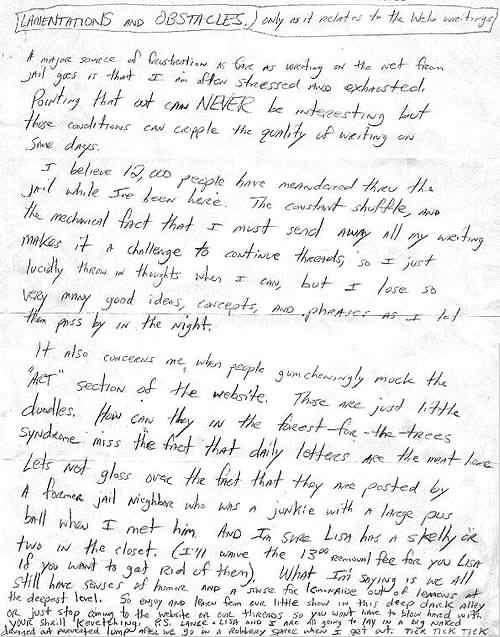 LAMENTATIONS AND OBSTACLES. / only as it relates to the Web writings
A major source of frustration as far as writing on the net from
jail goes is that I am often stressed AND exhausted.
Pointing that out can NEVER be interesting but
those conditions can cripple the quality of writing on
some days.
I believe 12,000 people have meandered thru the
jail while I've been here. The constant shuffle, AND
the mechanical fact that I must send AWAY all my writing
makes it a challenge to continue threads, so I just
lucidly throw in thoughts when I can, but I lose so
very many good ideas, concepts, AND phrases as I let
them pass by in the night.
It also concerns me, when people gumchewingly mock the
"ART" section of the website. Those are just little
doodles. How can they in the forest-for-the-trees
syndrome miss the fact that daily letters are the meat here
Lets not gloss over the fact that they are posted by
A former jail nieghbore who was a junkie with a large pus
ball when I met him. AND I'm sure Lisa has a skelly or
two in the closet. (I'll wave the 13⁰⁰ removal fee for you Lisa
if you want to get rid of them). What I'm saying is we all
still have senses of humor and a sense for lemonaide out of lemons at
the deepest level. So enjoy and learn from our little show in this deep dark alley
or just stop coming to the website or our threads so you won't have to blow hard with
YOUR shrill kevetching. P.S. Lance & Lisa and I are All going to lay in a big naked
lump After we go on A Robbery spree when I get out. TICK TICK TICK